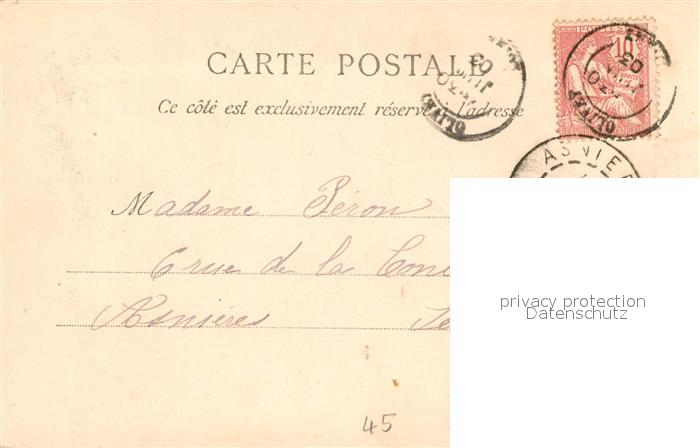 CARTE POSTALE
Ce côté est exclusivement réservé à l'adresse
POSTES 10
OLIVET
03
ASNIE
Madame Péron
6 rue de la
Asnières
privacy protection
Datenschutz
45